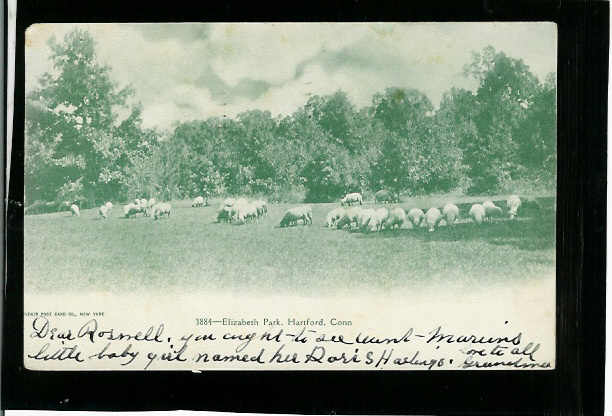 SOUVENIR POST CARD CO., NEW YORK
3884—Elizabeth Park, Hartford, Conn
Dear Roswell, you ought to see aunt Marion's
little baby girl named her Doris Hastings. love to all
Grandma